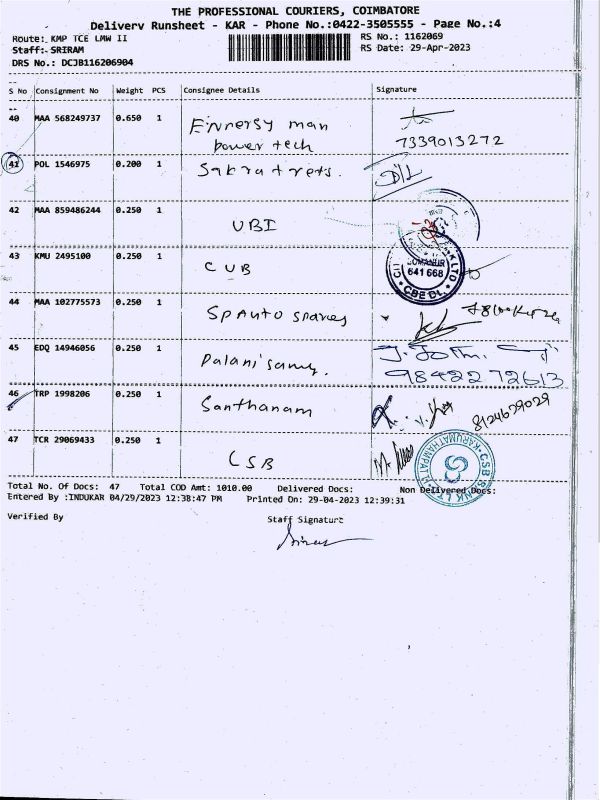 THE PROFESSIONAL COURIERS, COIMBATORE
Delivery Runsheet - KAR - Phone No.:0422-3505555 - Page No.:4
Route: KMP TCE LMW II
RS No.: 1162069
Staff: SRIRAM
RS Date: 29-Apr-2023
DRS No.: DCJB116206904
S No Consignment No Weight PCS Consignee Details Signature
40 MAA 568249737 0.650 1 Ennersy man
power tech
7339013272
41 POL 1546975 0.200 1
42 MAA 859486244 0.250 1 UBI
43 KMU 2495100 0.250 1 CUB
641 668
CBE DL.
44 MAA 102775573 0.250 1 SP Auto spares
45 EDQ 14946056 0.250 1 Palani samy.
9842272613
46 TRP 1998206 0.250 1 Santhanam
8124629029
47 TCR 29069433 0.250 1 CSB
Total No. Of Docs: 47 Total COD Amt: 1010.00 Delivered Docs: Non Delivered Docs:
Entered By :INDUKAR 04/29/2023 12:38:47 PM Printed On: 29-04-2023 12:39:31
Verified By
Staff Signature